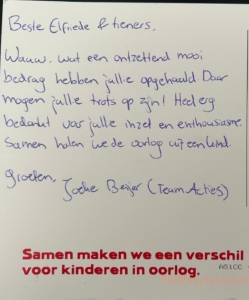 Beste Elfriede & tieners,
Wauw, wat een ontzettend mooi
bedrag hebben jullie opgehaald. Daar
mogen jullie trots op zijn! Heel erg
bedankt voor jullie inzet en enthousiasme.
Samen halen we de oorlog uit een kind.
Groeten,
Beijer (Team Acties)
Samen maken we een verschil
voor kinderen in oorlog.